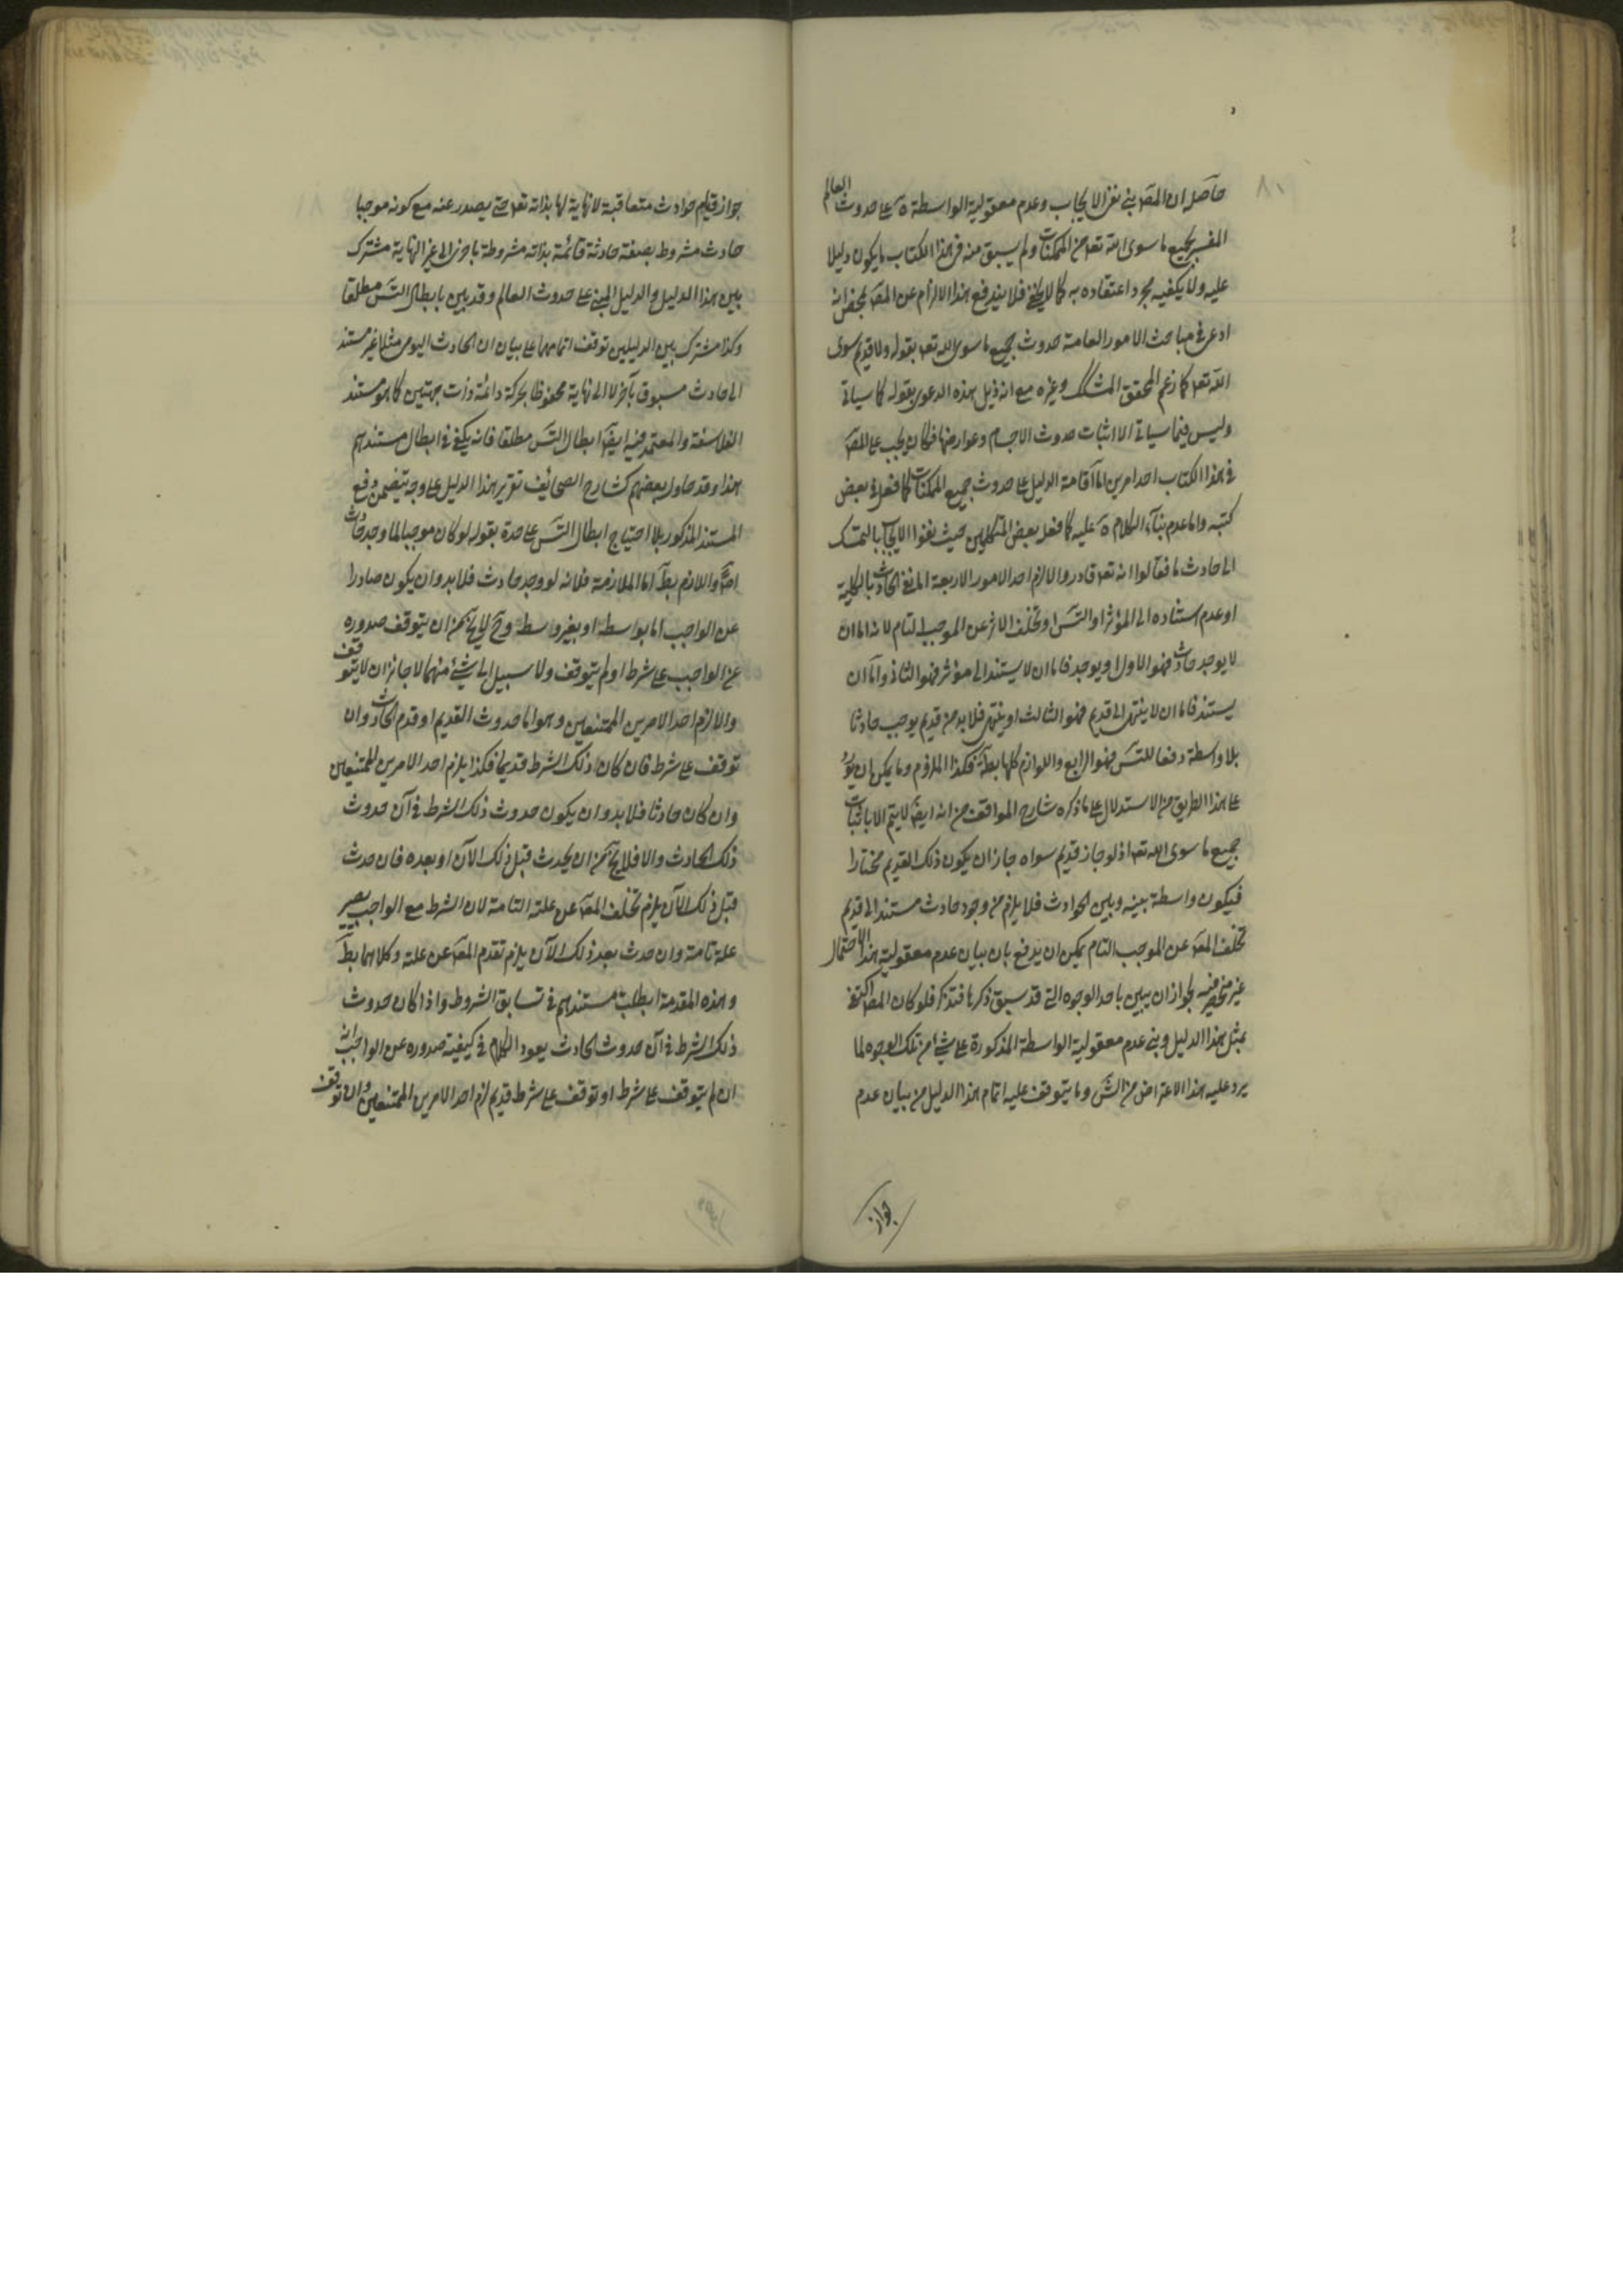 ٨٠
حاصله ان المصـ بنى نفى الايجاب وعدم معقولية الواسطة على حدوث العالم
المفسر بجميع ما سوى الله تعـ من الممكنات ولم يسبق منه فى هذا الكتاب ما يكون دليلا
عليه ولا يكفيه مجرد اعتقاده به كما لا يخفى فلا يندفع هذا الالزام عن المصـ بمحض انه
ادعى فى مباحث الامور العامة حدوث جميع ما سوى الله تعـ بقوله ولا قديم سوى
الله تعـ كما زعم المحقق وغيره مع انه ذيل هذه الدعوى بقوله كما سياتى
وليس فيما سياتى الا اثبات حدوث الاجسام وعوارضها فكان يجب على المصـ
فى هذا الكتاب احد امرين اما اقامة الدليل على حدوث جميع الممكنات كما فعل فى بعض
كتبه واما عدم بناء الكلام عليه كما فعل بعض المتكلمين حيث نفوا الايجاب بالتمسك
الى حادث ما فقالوا انه تعـ قادر والا لزم احد الامور الاربعة اما نفى الحادث بالكلية
او عدم استناده الى المؤثر او التسـ او تخلف الاثر عن الموجب التام لانه اما ان
لا يوجد حادث فهو الاول او يوجد فاما ان لا يستند الى مؤثر فهو الثانى واما ان
يستند فاما ان لا ينتهى الى قديم فهو الثالث او ينتهى فلا بد من قديم يوجب حادثا
بلا واسطة دفعا للتسـ فهو الرابع واللوازم كلها بط فكذا الملزوم وما يمكن ان يورد
على هذا الطريق من الاستدلال على ما ذكره شارح المواقف من انه ايضـ لا يتم الا باثبات
جميع ما سوى الله تعـ اذ لو جاز قديم سواه جاز ان يكون ذلك القديم مختارا
فيكون واسطة بينه وبين الحوادث فلا يلزم من وجود حادث مستند الى قديم
تخلف المعـ عن الموجب التام يمكن ان يدفع بان بيان عدم معقولية هذا الاحتمال
غير منحصر فيه لجواز ان يبين باحد الوجوه التى قد سبق ذكرها فتذكر فلو كان المصـ اكتفى
بمثل هذا الدليل وبنى عدم معقولية الواسطة المذكورة على شئ من تلك الوجوه لما
يرد عليه هذا الاعتراض من الشـ وما يتوقف عليه اتمام هذا الدليل من بيان عدم
جواز
جواز قيام حوادث متعاقبة لا نهاية لها بذاته تعـ حتى يصدر عنه مع كونه موجبا
حادث مشروط بصفة حادثة قائمة بذاته مشروطة باخرى الى غير النهاية مشترك
بين هذا الدليل والدليل المبنى على حدوث العالم وقد بين بابطال التسـ مطلقا
وكذا مشترك بين الدليلين توقف اتمامهما على بيان ان الحادث اليومى مثلا غير مستند
الى حادث مسبوق بآخر لا الى نهاية محفوظا بحركة دائمة ذات جهتين كما هو مستند
الفلاسفة والمعتمد فيه ايضـ ابطال التسـ مطلقا فانه يكفى فى ابطال مستندهم
هذا وقد حاول بعضهم كشارح الصحائف تقرير هذا الدليل على وجه يتضمن دفع
المستند المذكور بلا احتياج ابطال التسـ على حدة بقوله لو كان موجبا لما وجد حادث
اصلا واللازم بط اما الملازمة فلانه لو وجد حادث فلا بد وان يكون صادرا
عن الواجب اما بواسطة او بغير واسطة وح لا يخ من ان يتوقف صدوره
عن الواجب على شرط او لم يتوقف ولا سبيل الى شئ منهما لا جائز ان لا يتوقف
والا لزم احد الامرين الممتنعين وهو اما حدوث القديم او قدم الحادث وان
توقف على شرط فان كان ذلك الشرط قديما فكذا يلزم احد الامرين الممتنعين
وان كان حادثا فلا بد وان يكون حدوث ذلك الشرط فى آن حدوث
ذلك الحادث والا فلا يخ من ان يحدث قبل ذلك الآن او بعده فان حدث
قبل ذلك الآن يلزم تخلف المعـ عن علته التامة لان الشرط مع الواجب يصير
علة تامة وان حدث بعد ذلك الآن يلزم تقدم المعـ عن علته وكلاهما بط
وبهذه المقدمة ابطلت مستندهم فى تسابق الشروط واذا كان حدوث
ذلك الشرط فى آن حدوث الحادث يعود الكلام فى كيفية صدوره عن الواجب انه
ان لم يتوقف على شرط او توقف على شرط قديم لزم احد الامرين الممتنعين وان توقف